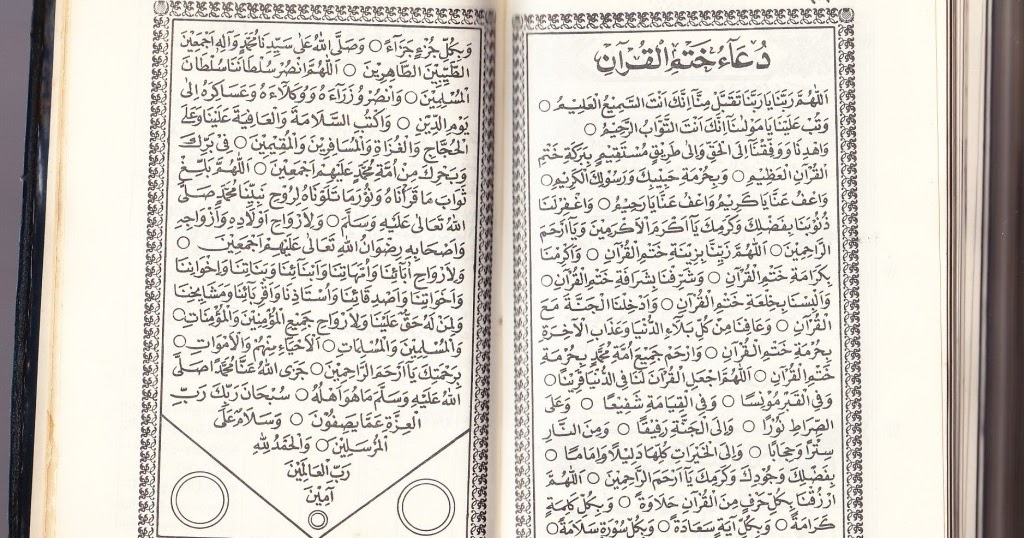 دُعَاءُ خَتْمِ الْقُرْاٰنِ
اَللّٰهُمَّ رَبَّنَا يَا رَبَّنَا تَقَبَّلْ مِنَّا اِنَّكَ اَنْتَ السَّمِيعُ الْعَلِيمُ ○
وَتُبْ عَلَيْنَا يَا مَوْلٰينَا اِنَّكَ اَنْتَ التَّوَّابُ الرَّحِيمُ ○
وَاهْدِنَا وَوَفِّقْنَا اِلَى الْحَقِّ وَاِلٰى طَرِيقٍ مُسْتَقِيمٍ بِبَرَكَةِ خَتْمِ
الْقُرْاٰنِ الْعَظِيمِ ○ وَبِحُرْمَةِ حَبِيبِكَ وَرَسُولِكَ الْكَرِيمِ ○
وَاعْفُ عَنَّا يَا كَرِيمُ وَاعْفُ عَنَّا يَا رَحِيمُ ○ وَاغْفِرْ لَنَا
ذُنُوبَنَا بِفَضْلِكَ وَكَرَمِكَ يَا اَكْرَمَ الْاَكْرَمِينَ وَيَا اَرْحَمَ
الرَّاحِمِينَ ○ اَللّٰهُمَّ زَيِّنَّا بِزِينَةِ خَتْمِ الْقُرْاٰنِ ○ وَاَكْرِمْنَا
بِكَرَامَةِ خَتْمِ الْقُرْاٰنِ ○ وَشَرِّفْنَا بِشَرَافَةِ خَتْمِ الْقُرْاٰنِ ○
وَاَلْبِسْنَا بِخِلْعَةِ خَتْمِ الْقُرْاٰنِ ○ وَاَدْخِلْنَا الْجَنَّةَ مَعَ
الْقُرْاٰنِ ○ وَعَافِنَا مِنْ كُلِّ بَلَاءِ الدُّنْيَا وَعَذَابِ الْاٰخِرَةِ
بِحُرْمَةِ خَتْمِ الْقُرْاٰنِ ○ وَارْحَمْ جَمِيعَ اُمَّةِ مُحَمَّدٍ بِحُرْمَةِ
خَتْمِ الْقُرْاٰنِ ○ اَللّٰهُمَّ اجْعَلِ الْقُرْاٰنَ لَنَا فِى الدُّنْيَا قَرِينًا ○
وَفِى الْقَبْرِ مُونِسًا ○ وَفِى الْقِيَامَةِ شَفِيعًا ○ وَعَلَى
الصِّرَاطِ نُورًا ○ وَاِلَى الْجَنَّةِ رَفِيقًا ○ وَمِنَ النَّارِ
سِتْرًا وَحِجَابًا ○ وَاِلَى الْخَيْرَاتِ كُلِّهَا دَلِيلًا وَاِمَامًا ○
بِفَضْلِكَ وَجُودِكَ وَكَرَمِكَ يَا اَرْحَمَ الرَّاحِمِينَ ○ اَللّٰهُمَّ
ارْزُقْنَا بِكُلِّ حَرْفٍ مِنَ الْقُرْاٰنِ حَلَاوَةً ○ وَبِكُلِّ كَلِمَةٍ
كَرَامَةً ○ وَبِكُلِّ اٰيَةٍ سَعَادَةً ○ وَبِكُلِّ سُورَةٍ سَلَامَةً ○
وَبِكُلِّ جُزْءٍ جَزَاءً ○ وَصَلَّى اللهُ عَلٰى سَيِّدِنَا مُحَمَّدٍ وَاٰلِهِ اَجْمَعِينَ
الطَّيِّبِينَ الطَّاهِرِينَ ○ اَللّٰهُمَّ انْصُرْ سُلْطَانَنَا سُلْطَانَ
الْمُسْلِمِينَ ○ وَانْصُرْ وُزَرَاءَهُ وَوُكَلَاءَهُ وَعَسَاكِرَهُ اِلٰى
يَوْمِ الدِّينِ ○ وَاكْتُبِ السَّلَامَةَ وَالْعَافِيَةَ عَلَيْنَا وَعَلَى
الْحُجَّاجِ وَالْغُزَاةِ وَالْمُسَافِرِينَ وَالْمُقِيمِينَ ○ فِى بَرِّكَ
وَبَحْرِكَ مِنْ اُمَّةِ مُحَمَّدٍ عَلَيْهِمْ اَجْمَعِينَ ○ اَللّٰهُمَّ بَلِّغْ
ثَوَابَ مَا قَرَأْنَاهُ وَنُوِّرَ مَا تَلَوْنَاهُ لِرُوحِ نَبِيِّنَا مُحَمَّدٍ صَلَّى
اللهُ تَعَالٰى عَلَيْهِ وَسَلَّمَ ○ وَلِاَرْوَاحِ اَوْلَادِهِ وَاَزْوَاجِهِ
وَاَصْحَابِهِ رِضْوَانُ اللهِ تَعَالٰى عَلَيْهِمْ اَجْمَعِينَ ○
وَلِاَرْوَاحِ اٰبَائِنَا وَاُمَّهَاتِنَا وَاَبْنَائِنَا وَبَنَاتِنَا وَاِخْوَانِنَا
وَاَخَوَاتِنَا وَاَصْدِقَائِنَا وَاُسْتَاذِنَا وَاَقْرِبَائِنَا وَمَشَايِخِنَا
وَلِمَنْ لَهُ حَقٌّ عَلَيْنَا وَلِاَرْوَاحِ جَمِيعِ الْمُؤْمِنِينَ وَالْمُؤْمِنَاتِ ○
وَالْمُسْلِمِينَ وَالْمُسْلِمَاتِ ○ اَلْاَحْيَاءِ مِنْهُمْ وَالْاَمْوَاتِ ○
بِرَحْمَتِكَ يَا اَرْحَمَ الرَّاحِمِينَ ○ جَزَى اللهُ عَنَّا مُحَمَّدًا صَلَّى
اللهُ عَلَيْهِ وَسَلَّمَ مَا هُوَ اَهْلُهُ ○ سُبْحَانَ رَبِّكَ رَبِّ
الْعِزَّةِ عَمَّا يَصِفُونَ ○ وَسَلَامٌ عَلَى
الْمُرْسَلِينَ ○ وَالْحَمْدُ لِلّٰهِ
رَبِّ الْعَالَمِينَ
اٰمِينَ